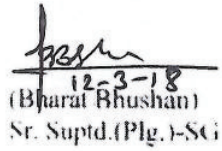 12-3-18
(Bharat Bhushan)
Sr. Suptd.(Plg.)-SG